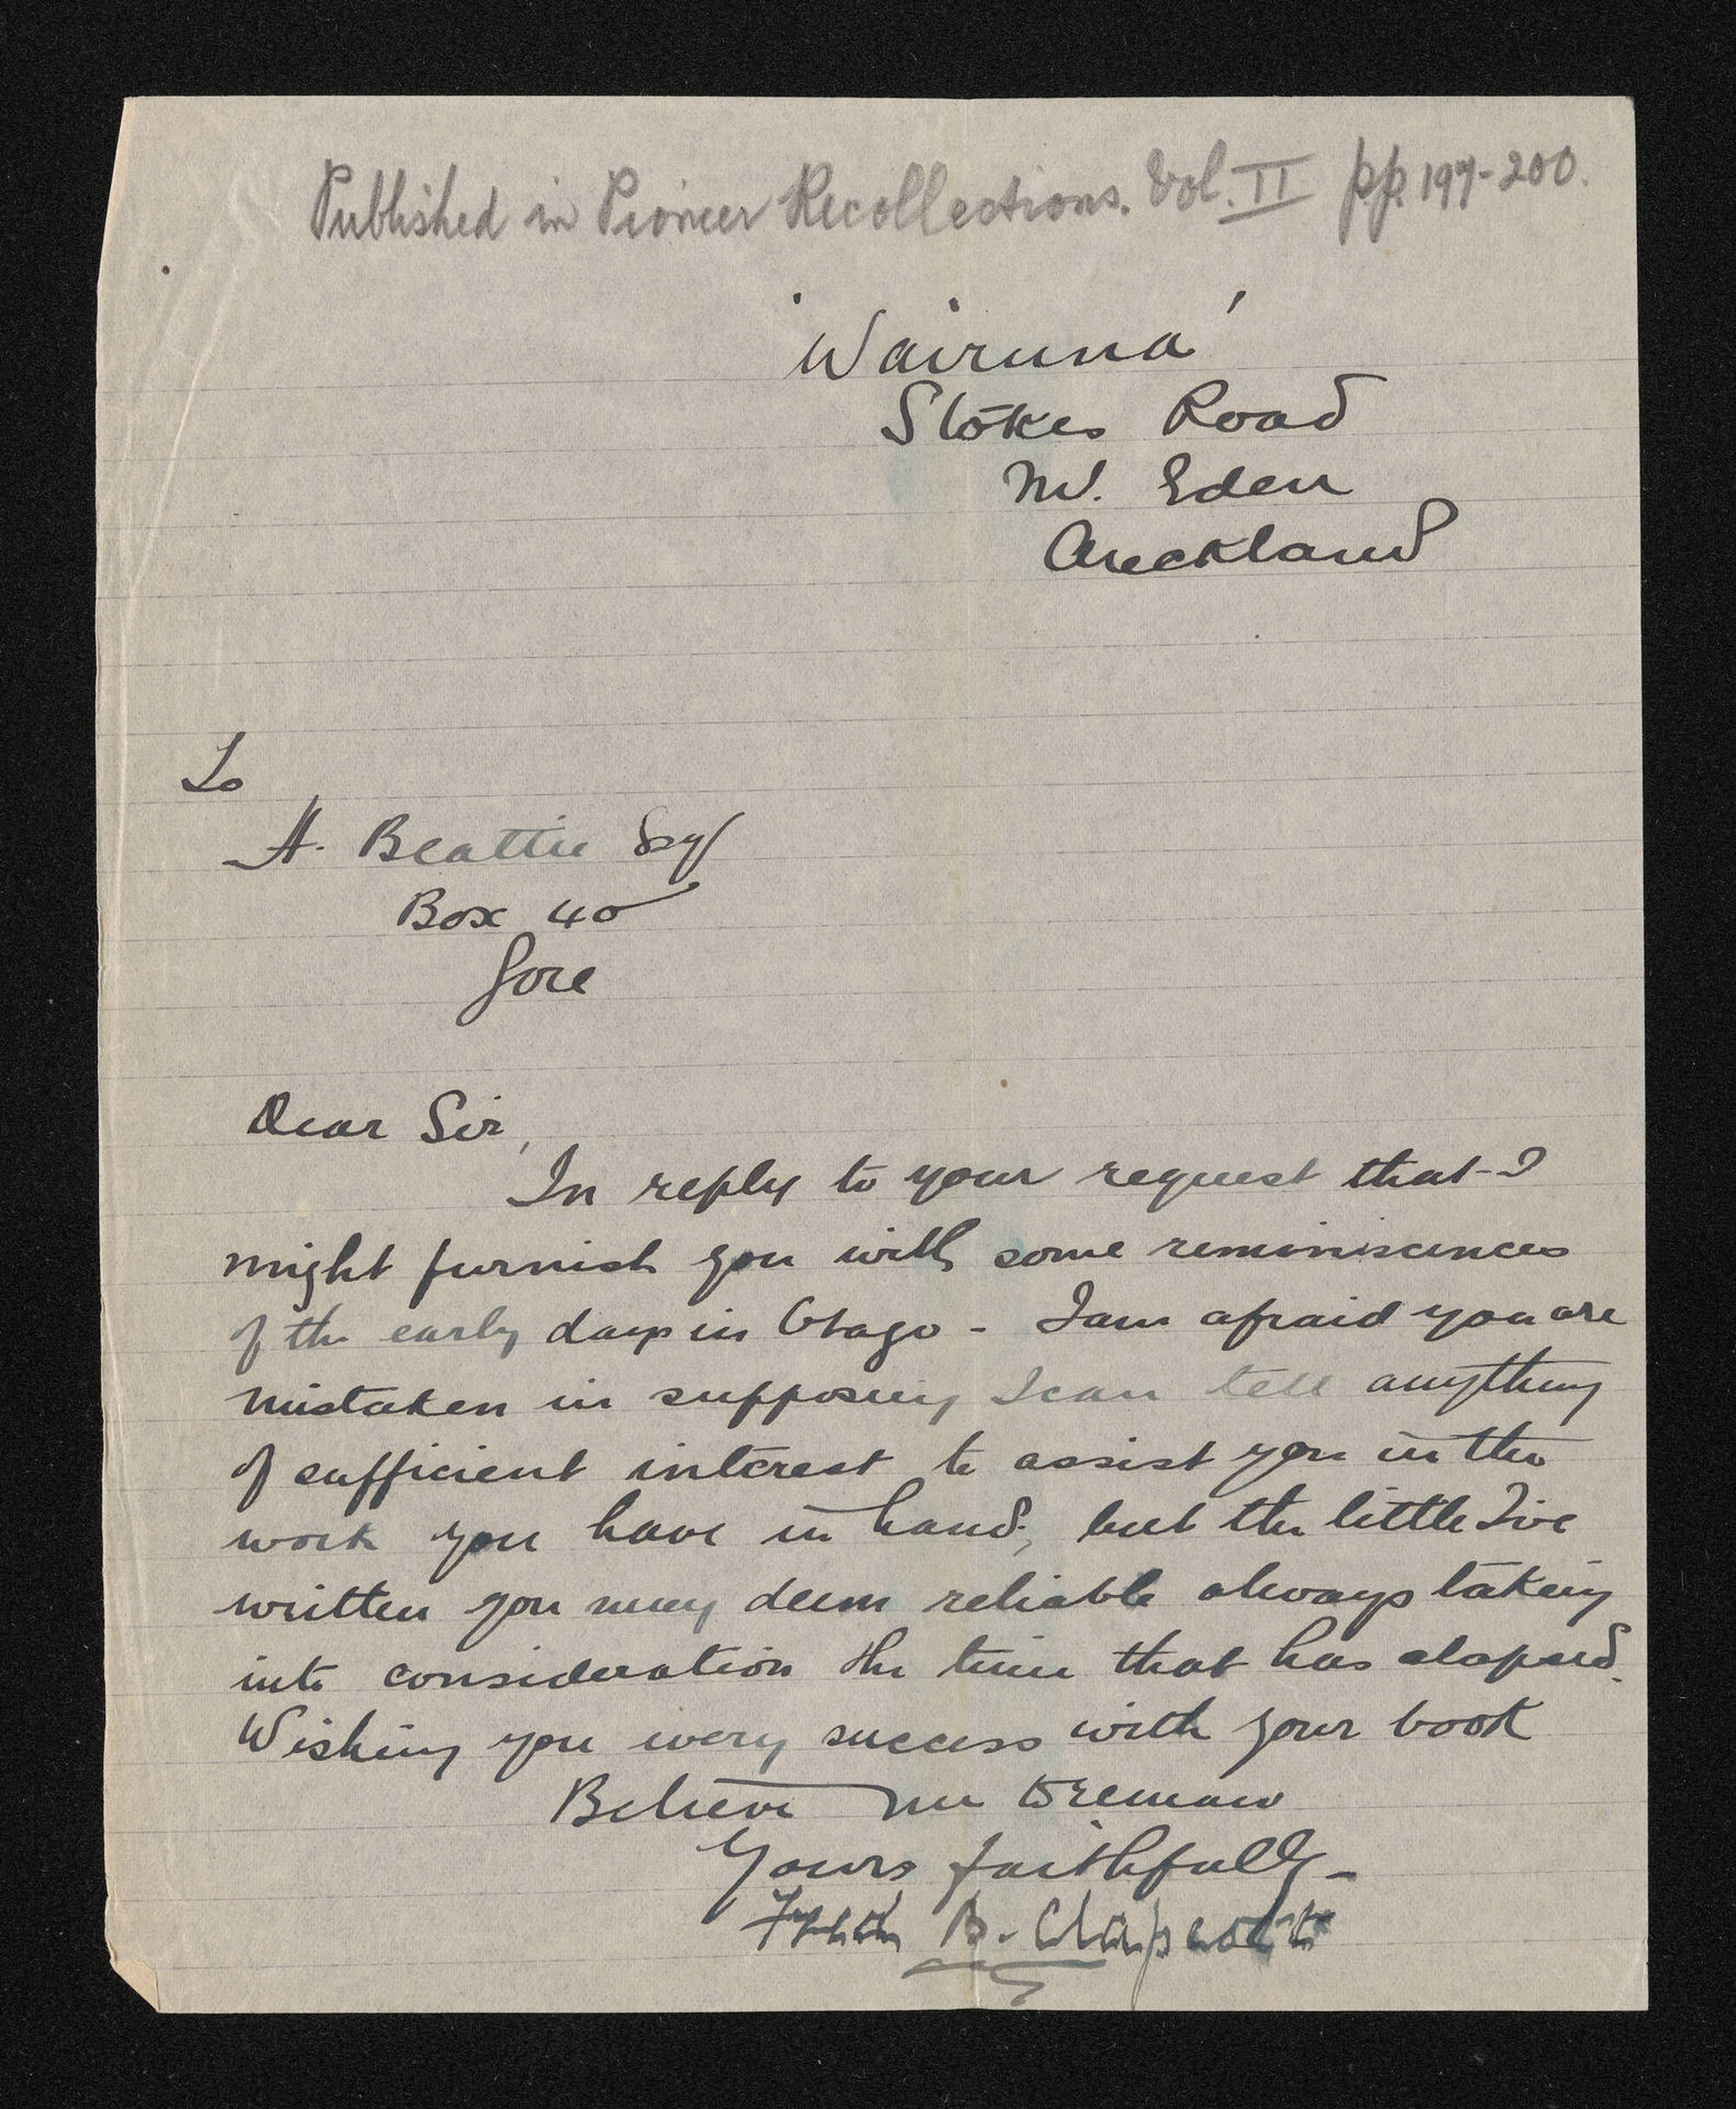 Published in Pioneer Recollections. Vol. II pp. 197-200.
'Wairuna'
Stokes Road
Mt. Eden
Auckland
To
H. Beattie Esq
Box 40
Gore
Dear Sir,
In reply to your request that I
might furnish you with some reminiscences
of the early days in Otago - I am afraid you are
mistaken in supposing I can tell anything
of sufficient interest to assist you in the
work you have in hand; but the little I've
written you may deem reliable always taking
into consideration the time that has elapsed.
Wishing you every success with your book
Believe me to remain
Yours faithfully -
B.